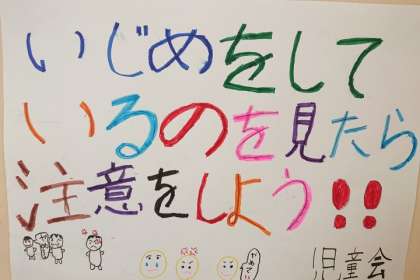 いじめをして
いるのを見たら
注意をしよう!!
やめてい
旧童会